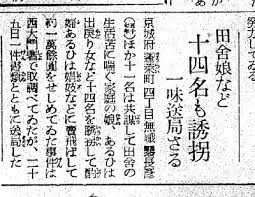 力してゐる
田舍娘など
十四名も誘拐
一味送局さる
京城府蓬萊町四丁目無職
ほか十一名は共謀して田舍の
生活苦に喘ぐ家庭の娘、あるひは
出戻り女など十四名を誘拐して酌
婦あるひは娼妓などに賣飛ばして
約一萬餘圓をせしめてゐた事件は
西大門署で取調べてゐたが、二十
五日一件書類とともに送局した